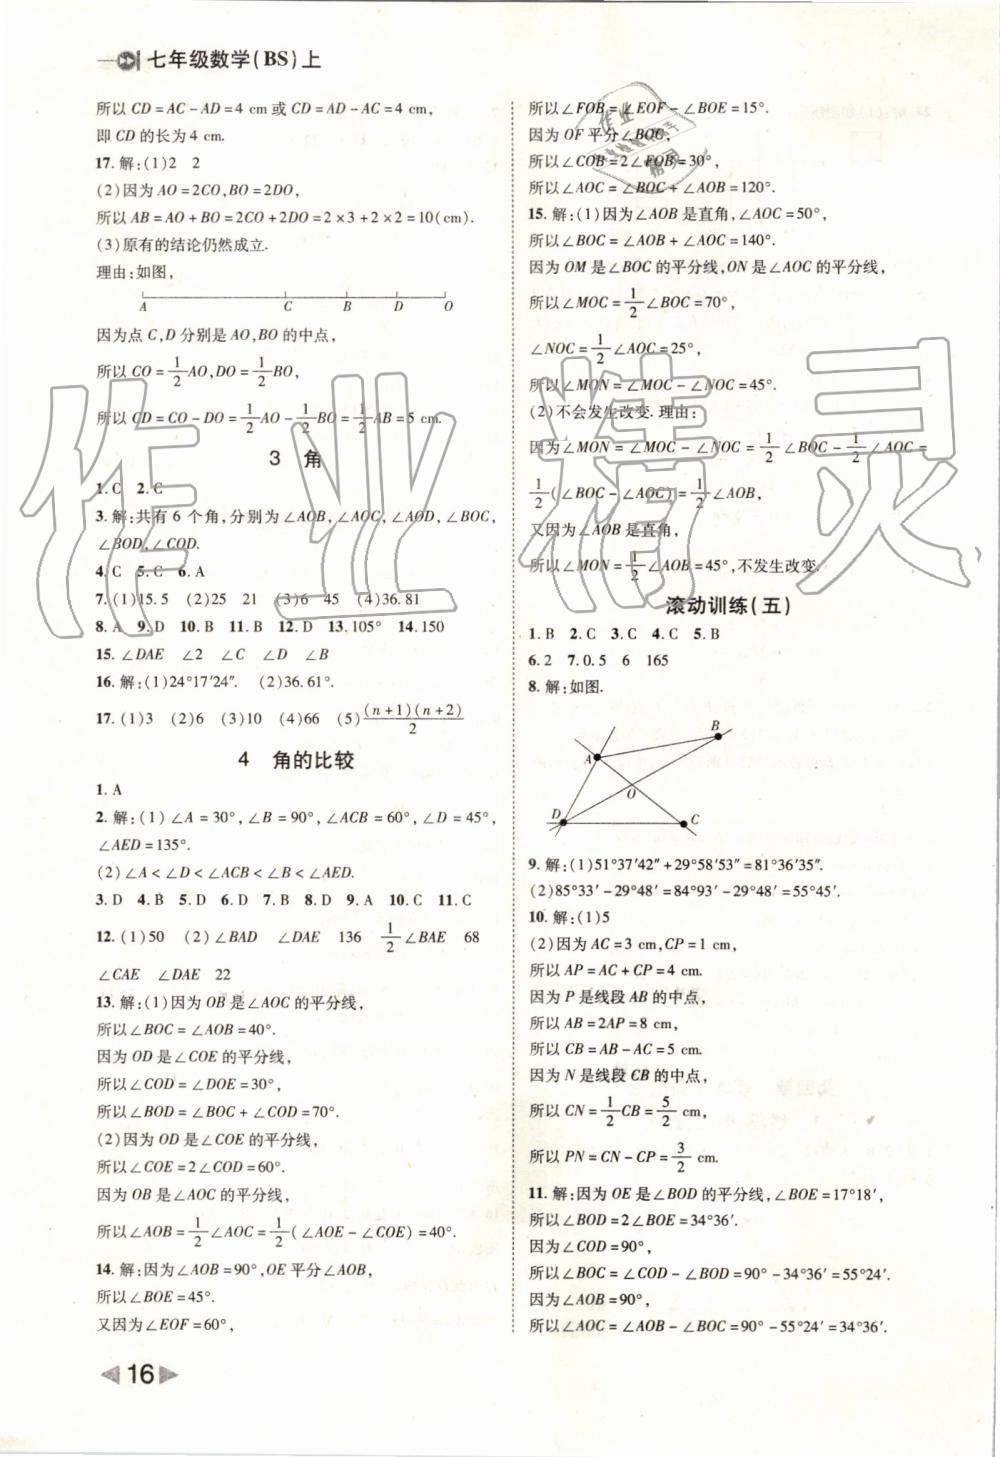 七年级数学(BS)上
所以 CD = AC - AD = 4 cm 或 CD = AD - AC = 4 cm,
即 CD 的长为 4 cm.
17. 解:(1)2 2
(2)因为 AO = 2CO, BO = 2DO,
所以 AB = AO + BO = 2CO + 2DO = 2 × 3 + 2 × 2 = 10(cm).
(3)原有的结论仍然成立.
理由:如图,
A C B D O
因为点 C, D 分别是 AO, BO 的中点,
所以 CO = 1/2 AO, DO = 1/2 BO,
所以 CD = CO - DO = 1/2 AO - 1/2 BO = 1/2 AB = 5 cm.
3 角
1. C 2. C
3. 解:共有 6 个角,分别为∠AOB,∠AOC,∠AOD,∠BOC,
∠BOD,∠COD.
4. C 5. C 6. A
7. (1)15.5 (2)25 21 (3)6 45 (4)36.81
8. A 9. D 10. B 11. B 12. D 13. 105° 14. 150
15. ∠DAE ∠2 ∠C ∠D ∠B
16. 解:(1)24°17′24″. (2)36.61°.
17. (1)3 (2)6 (3)10 (4)66 (5)(n+1)(n+2)/2
4 角的比较
1. A
2. 解:(1)∠A = 30°,∠B = 90°,∠ACB = 60°,∠D = 45°,
∠AED = 135°.
(2)∠A < ∠D < ∠ACB < ∠B < ∠AED.
3. D 4. B 5. D 6. D 7. B 8. D 9. A 10. C 11. C
12. (1)50 (2)∠BAD ∠DAE 136 1/2 ∠BAE 68
∠CAE ∠DAE 22
13. 解:(1)因为 OB 是∠AOC 的平分线,
所以∠BOC = ∠AOB = 40°.
因为 OD 是∠COE 的平分线,
所以∠COD = ∠DOE = 30°,
所以∠BOD = ∠BOC + ∠COD = 70°.
(2)因为 OD 是∠COE 的平分线,
所以∠COE = 2∠COD = 60°.
因为 OB 是∠AOC 的平分线,
所以∠AOB = 1/2 ∠AOC = 1/2 (∠AOE - ∠COE) = 40°.
14. 解:因为∠AOB = 90°, OE 平分∠AOB,
所以∠BOE = 45°.
又因为∠EOF = 60°,
所以∠FOB = ∠EOF - ∠BOE = 15°.
因为 OF 平分∠BOC,
所以∠COB = 2∠FOB = 30°,
所以∠AOC = ∠BOC + ∠AOB = 120°.
15. 解:(1)因为∠AOB 是直角,∠AOC = 50°,
所以∠BOC = ∠AOB + ∠AOC = 140°.
因为 OM 是∠BOC 的平分线, ON 是∠AOC 的平分线,
所以∠MOC = 1/2 ∠BOC = 70°,
∠NOC = 1/2 ∠AOC = 25°,
所以∠MON = ∠MOC - ∠NOC = 45°.
(2)不会发生改变. 理由:
因为∠MON = ∠MOC - ∠NOC = 1/2 ∠BOC - 1/2 ∠AOC =
1/2 (∠BOC - ∠AOC) = 1/2 ∠AOB,
又因为∠AOB 是直角,
所以∠MON = 1/2 ∠AOB = 45°,不发生改变.
滚动训练(五)
1. B 2. C 3. C 4. C 5. B
6. 2 7. 0.5 6 165
8. 解:如图.
B
A
O
D
C
9. 解:(1)51°37′42″ + 29°58′53″ = 81°36′35″.
(2)85°33′ - 29°48′ = 84°93′ - 29°48′ = 55°45′.
10. 解:(1)5
(2)因为 AC = 3 cm, CP = 1 cm,
所以 AP = AC + CP = 4 cm.
因为 P 是线段 AB 的中点,
所以 AB = 2AP = 8 cm,
所以 CB = AB - AC = 5 cm.
因为 N 是线段 CB 的中点,
所以 CN = 1/2 CB = 5/2 cm,
所以 PN = CN - CP = 3/2 cm.
11. 解:因为 OE 是∠BOD 的平分线,∠BOE = 17°18′,
所以∠BOD = 2∠BOE = 34°36′.
因为∠COD = 90°,
所以∠BOC = ∠COD - ∠BOD = 90° - 34°36′ = 55°24′.
因为∠AOB = 90°,
所以∠AOC = ∠AOB - ∠BOC = 90° - 55°24′ = 34°36′.
16
作业精灵